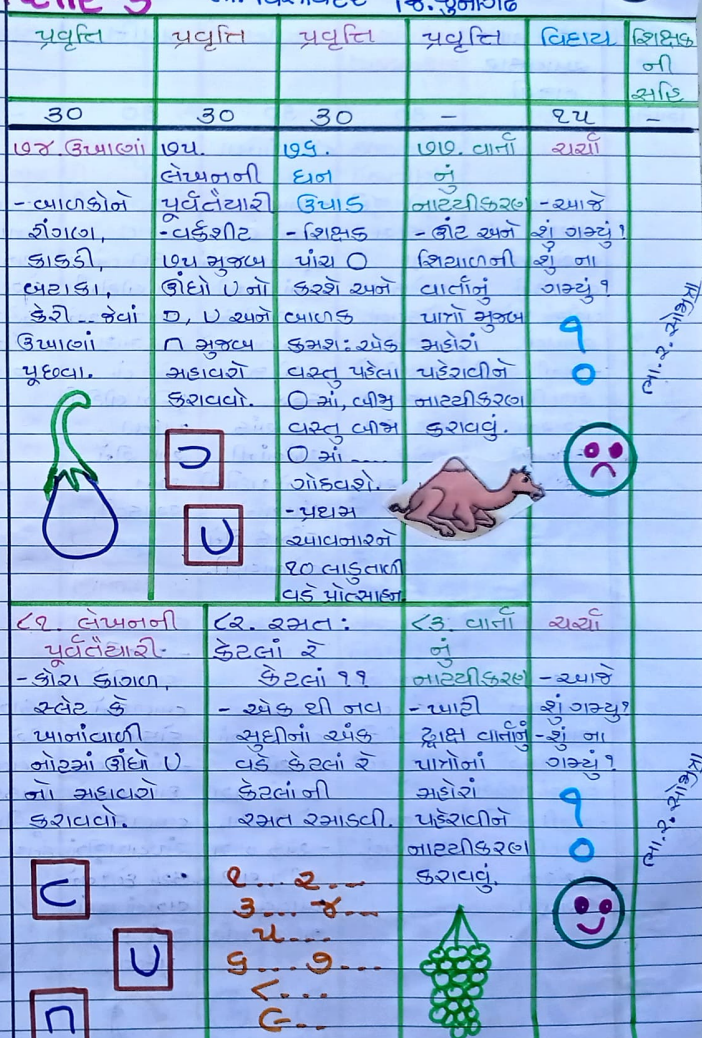 પ્રવૃત્તિ પ્રવૃત્તિ પ્રવૃત્તિ પ્રવૃત્તિ વિદાય શિક્ષક
ની
સહિ
૩૦ ૩૦ ૩૦ - ૧૫ -
૭૪. ઉખાણાં
- બાળકોને
રીંગણ,
કાકડી,
બટાકા,
કેરી... જેવાં
ઉખાણાં
પૂછવા.
૭૫.
લેખનની
પૂર્વતૈયારી
- વર્કશીટ
૭૫ મુજબ
ઊંધો U નો
⊃, U અને
∩ મુજબ
મહાવરો
કરાવવો.
⊃
U
૭૬.
ઘન
ઉપાડ
- શિક્ષક
પાંચ O
કરશે અને
બાળક
ક્રમશઃ એક
વસ્તુ પહેલા
O માં, બીજી
વસ્તુ બીજા
O માં ....
ગોઠવશે.
- પ્રથમ
આવનારને
૧૦ લાડુતાળી
વડે પ્રોત્સાહન.
૭૭. વાર્તા
નું
નાટ્યીકરણ
- ઊંટ અને
શિયાળની
વાર્તાનું
પાત્રો મુજબ
મહોરાં
પહેરાવીને
નાટ્યીકરણ
કરાવવું.
ચર્ચા
- આજે
શું ગમ્યું?
શું ના
ગમ્યું?
૧
૦
૮૧. લેખનની
પૂર્વતૈયારી
- કોરા કાગળ,
સ્લેટ કે
ખાનાંવાળી
નોટમાં ઊંધો U
નો મહાવરો
કરાવવો.
⊂
U
∩
૮૨. રમત:
કેટલાં રે
કેટલાં ૧૧
- એક થી નવ
સુધીનાં અંક
વડે કેટલાં રે
કેટલાં ની
રમત રમાડવી.
૧... ૨...
૩... ૪...
૫...
૬... ૭...
૮...
૯...
૮૩. વાર્તા
નું
નાટ્યીકરણ
- ખાટી
દ્રાક્ષ વાર્તાનું
પાત્રોનાં
મહોરાં
પહેરાવીને
નાટ્યીકરણ
કરાવવું.
ચર્ચા
- આજે
શું ગમ્યું?
- શું ના
ગમ્યું?
૧
૦